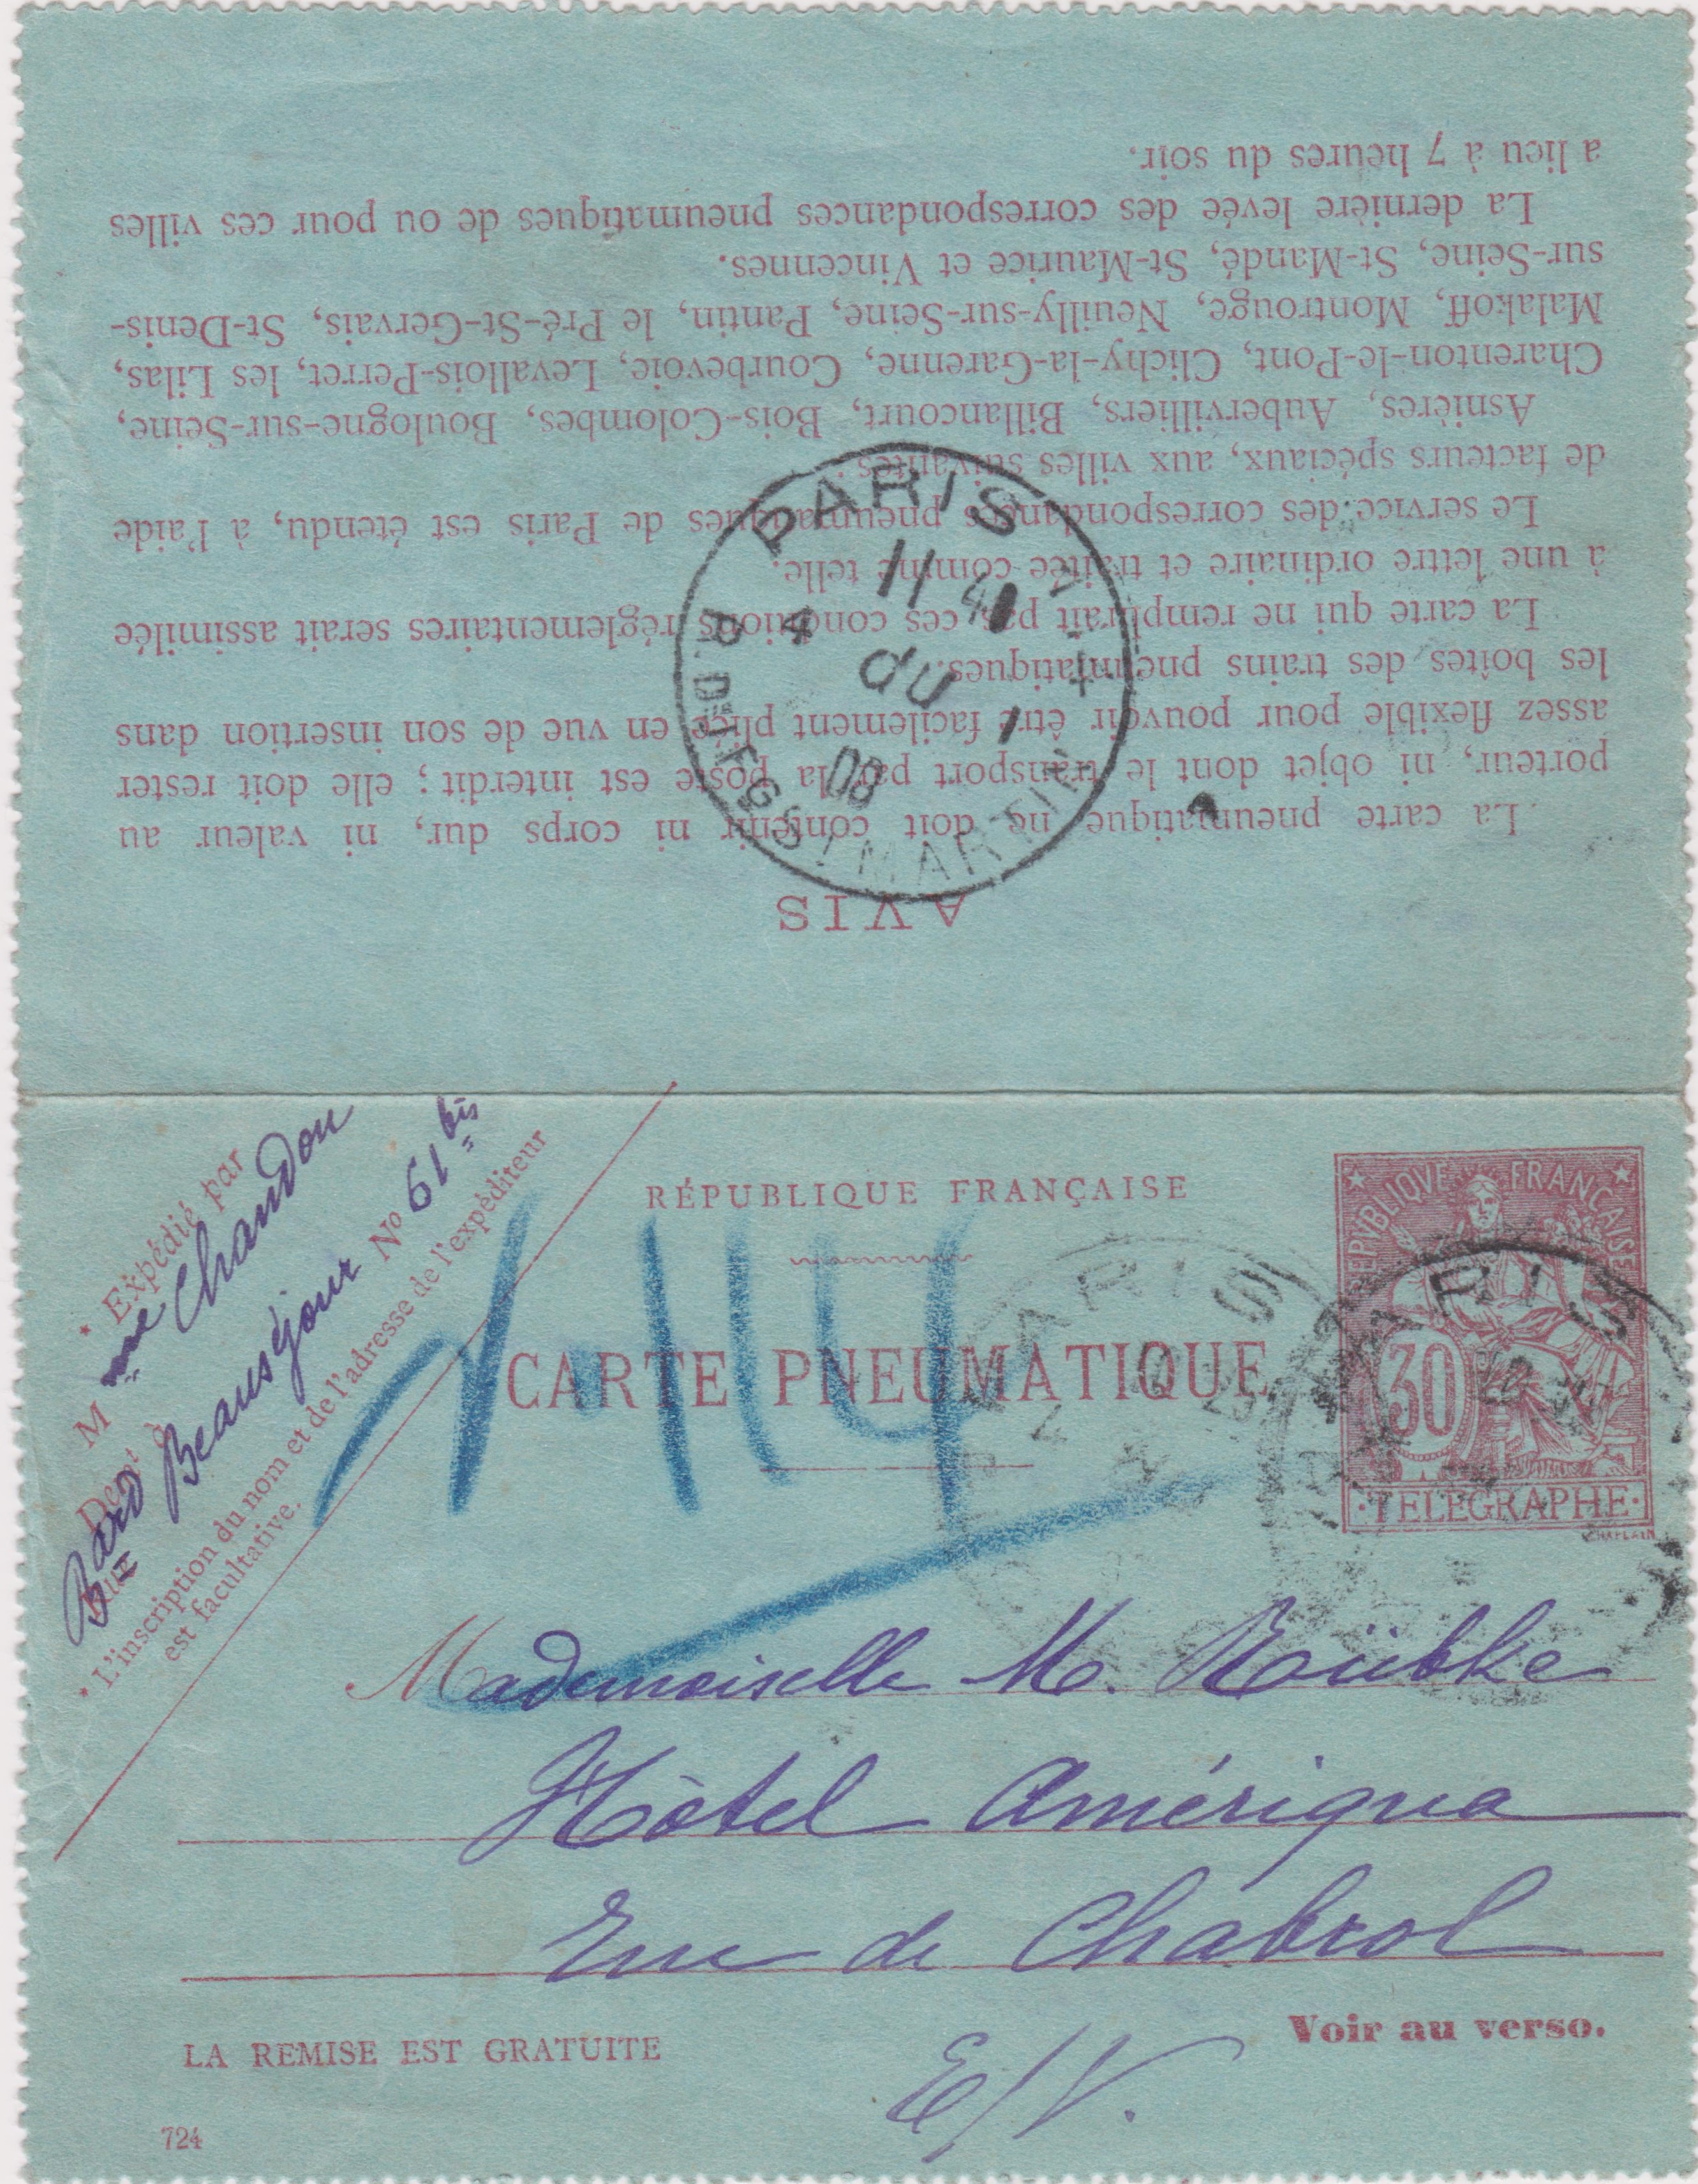 AVIS
La carte pneumatique ne doit contenir ni corps dur, ni valeur au
porteur, ni objet dont le transport par la poste est interdit ; elle doit rester
assez flexible pour pouvoir être facilement pliée en vue de son insertion dans
les boîtes des trains pneumatiques.
La carte qui ne remplirait pas ces conditions réglementaires serait assimilée
à une lettre ordinaire et traitée comme telle.
Le service des correspondances pneumatiques de Paris est étendu, à l'aide
de facteurs spéciaux, aux villes suivantes :
Asnières, Aubervilliers, Billancourt, Bois-Colombes, Boulogne-sur-Seine,
Charenton-le-Pont, Clichy-la-Garenne, Courbevoie, Levallois-Perret, les Lilas,
Malakoff, Montrouge, Neuilly-sur-Seine, Pantin, le Pré-St-Gervais, St-Denis-
sur-Seine, St-Mandé, St-Maurice et Vincennes.
La dernière levée des correspondances pneumatiques de ou pour ces villes
a lieu à 7 heures du soir.
PARIS
11 40
4 du 1
08
R. DU FG ST MARTIN
* Expédié par
Mme Chandon
Demt à
Bard Beauséjour No 61 bis
* L'inscription du nom et de l'adresse de l'expéditeur
est facultative.
RÉPUBLIQUE FRANÇAISE
CARTE PNEUMATIQUE
REPVBLIQVE FRANÇAISE
30
TELEGRAPHE
CHAPLAIN
PARIS
PARIS
Mademoiselle M. Roübke
Hôtel Amériqua
Rue de Chabrol
E/V.
LA REMISE EST GRATUITE
Voir au verso.
724